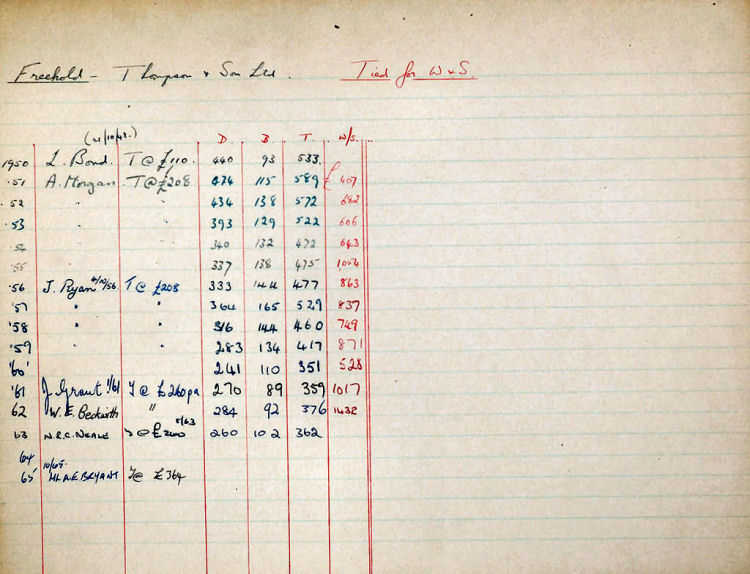 Freehold - Thompson & Son Ltd. Tied for W & S.
(21/10/48.) D. B. T. W/S.
1950 L. Bond. T @ £110. 440 93 533.
'51 A. Morgan. T @ £208 474 115 589 £ 407
'52 " " 434 138 572 682
'53 " " 393 129 522 606
'54 " " 340 132 472 643
'55 " " 337 138 475 1004
'56 J. Ryan 4/10/56 T @ £208 333 144 477 863
'57 " " 364 165 529 837
'58 " " 316 144 460 749
'59 " " 283 134 417 871
'60 241 110 351 528
'61 J. Grant 1/61 T @ £260 pa 270 89 359 1017
62 W. E. Beckwith " 284 92 376 1432
63 N.R.C. NEALE T @ £260 5/63 260 102 362
64
65 10/65. BRYANT T @ £364